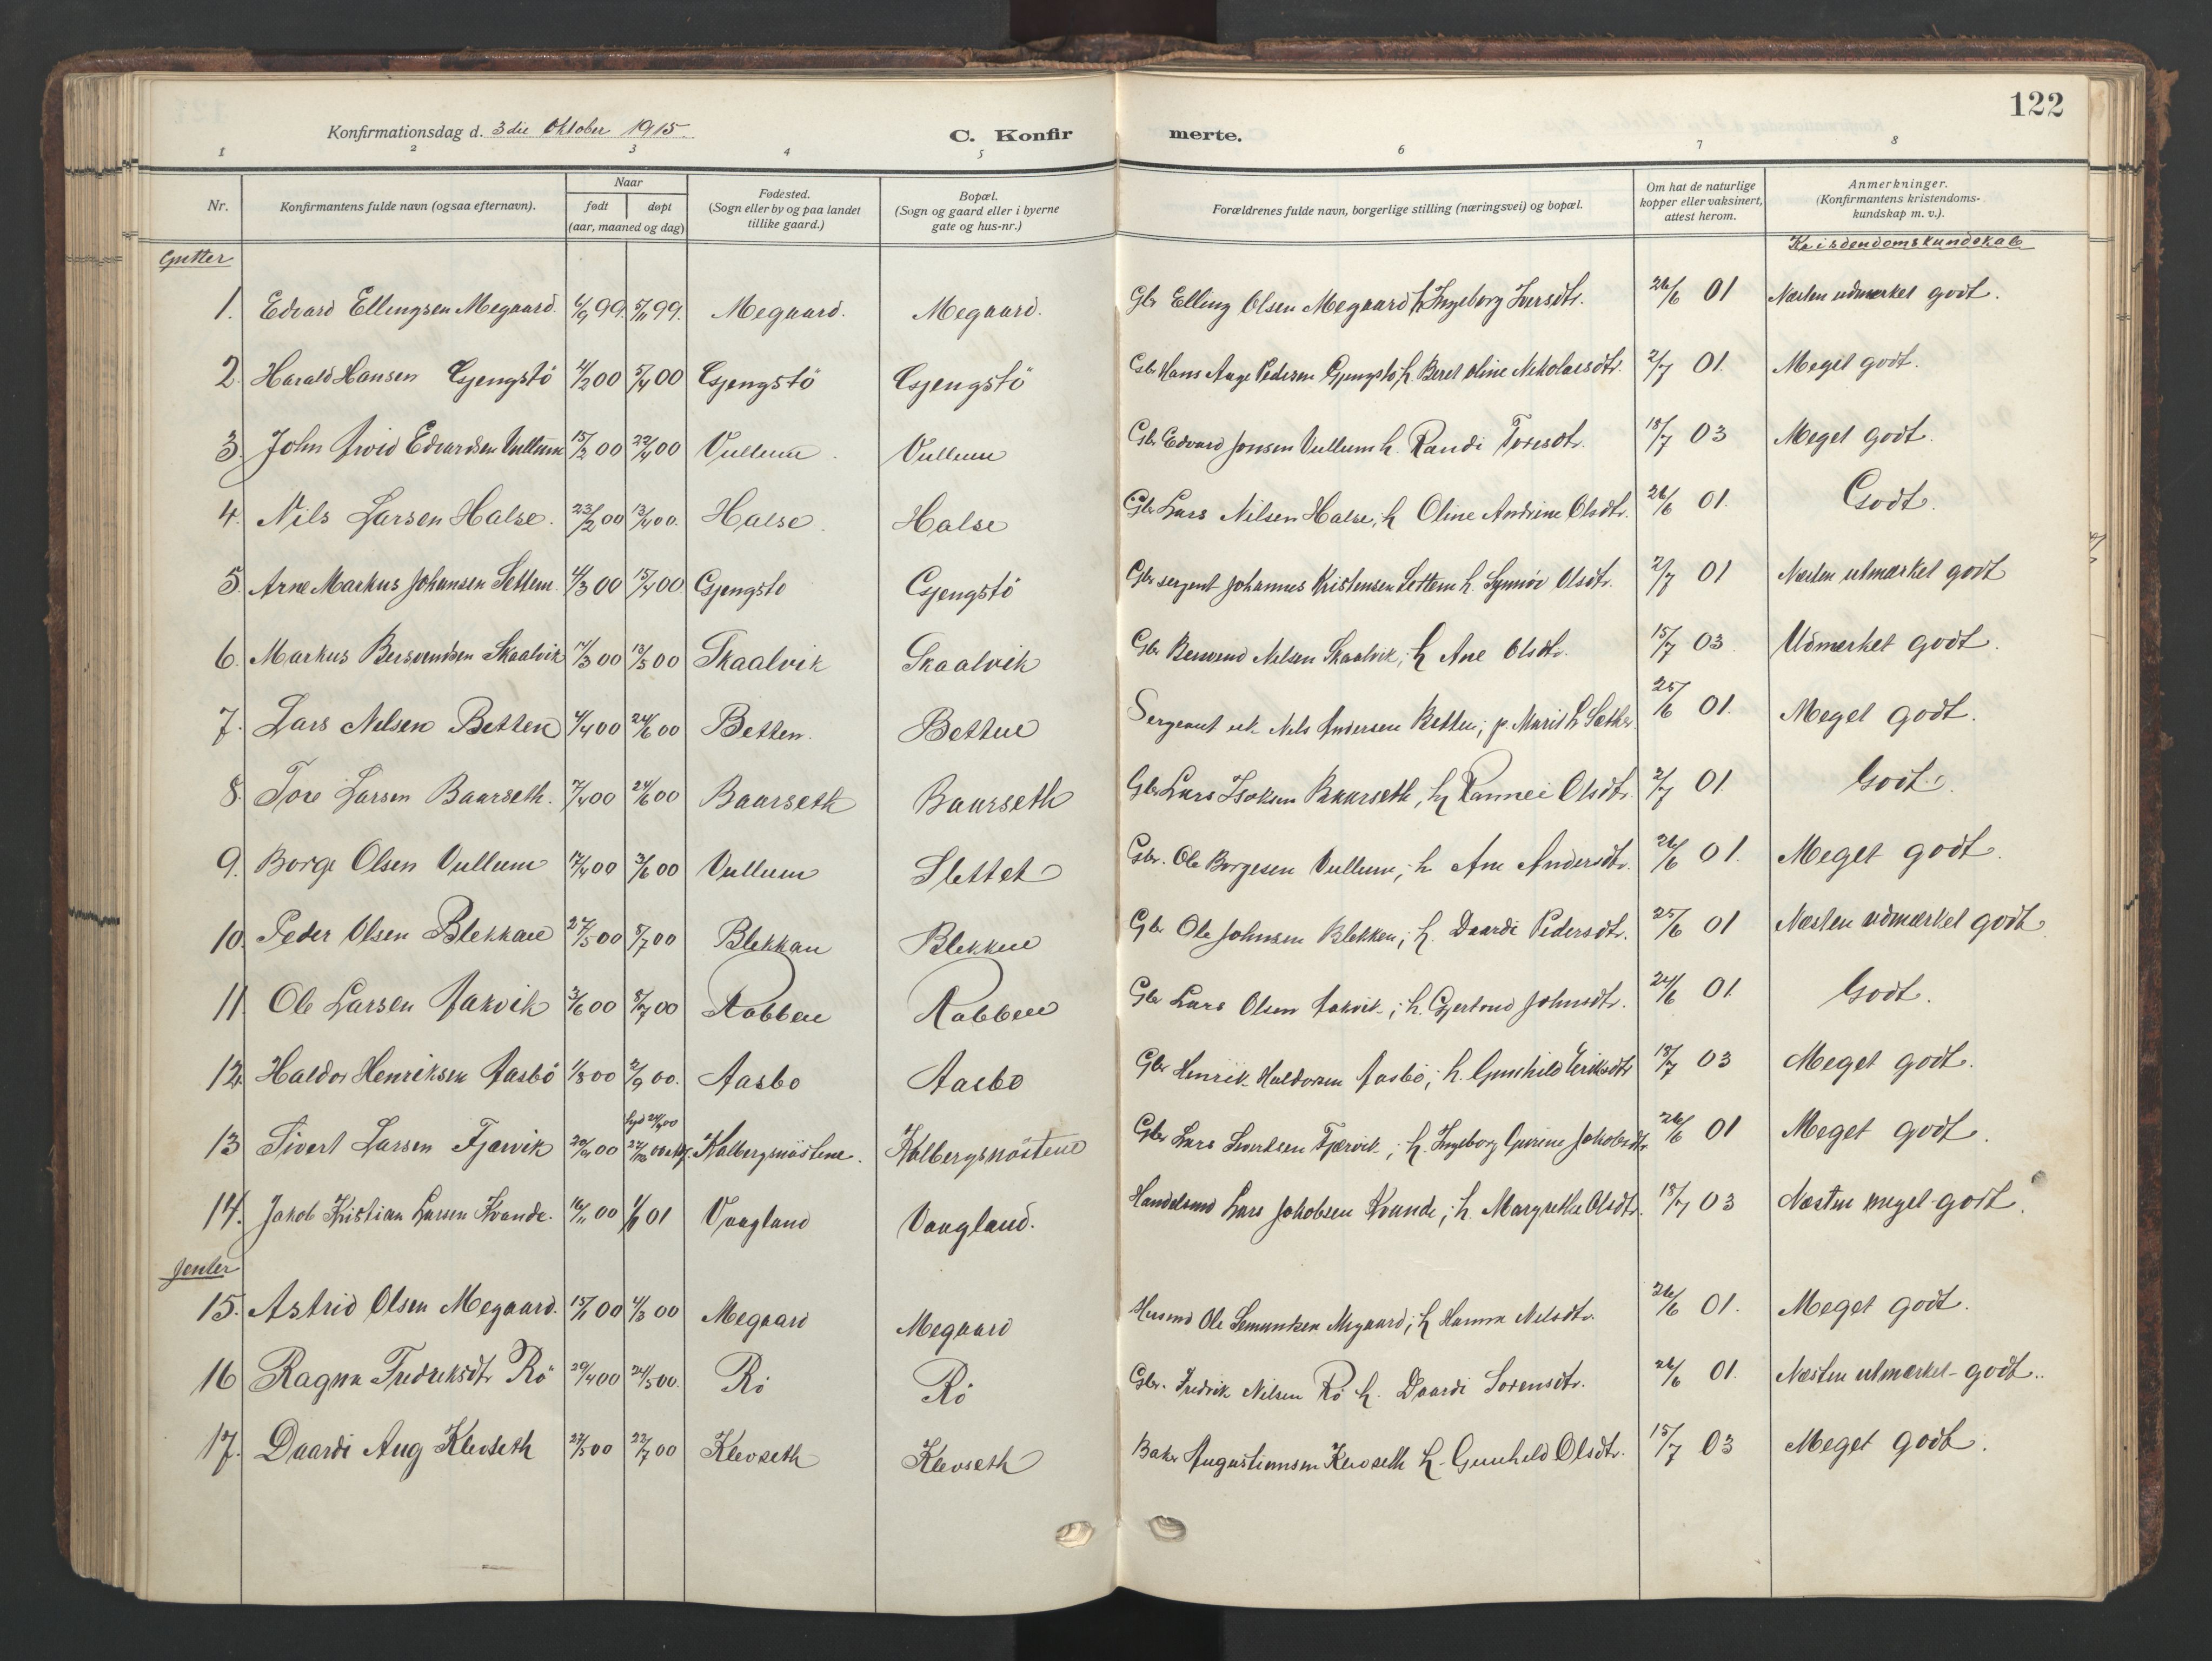 122
Konfirmationsdag d. 3die Oktober 1915.
C. Konfirmerte.
1 2 3 4 5 6 7 8
Nr. Konfirmantens fulde navn (ogsaa efternavn). Naar født døpt (aar, maaned og dag) Fødested. (Sogn eller by og paa landet tillike gaard.) Bopæl. (Sogn og gaard eller i byerne gate og hus-nr.) Forældrenes fulde navn, borgerlige stilling (næringsvei) og bopæl. Om hat de naturlige kopper eller vaksinert, attest herom. Anmerkninger. (Konfirmantens kristendomskundskap m. v.).
Gutter Krisdendomskundskab
1. Edvard Ellingsen Megaard. 6/9 99. 5/11 99. Megaard. Megaard. Gbr Elling Olsen Megaard h Ingeborg Iversdtr. 26/6 01 Næsten udmærket godt.
2. Harald Hansen Gjengstö 4/2 00 5/4 00 Gjengstö Gjengstö Gbr Hans Aage Pedersen Gjengstö, h. Beret Oline Nikolaisdtr. 2/7 01. Meget godt.
3. John Arvid Edvardsen Vullum 15/2 00 22/4 00 Vullum. Vullum Gbr Edvard Jonsen Vullum h. Randi Toresdtr. 15/7 03 Meget godt.
4. Nils Larsen Halse. 23/2 00 13/4 00. Halse. Halse Gbr Lars Nilsen Halse, h Oline Andrine Olsdtr. 26/6 01. Godt.
5. Arne Markus Johansen Settem 4/3 00 15/4 00 Gjengstö Gjengstö Gbr sergent Johannes Kristensen Settem h. Synnöve Olsdtr. 2/7 01 Næsten utmærket godt
6. Markus Bersvendsen Skaalvik 14/3 00 13/5 00 Skaalvik Skaalvik Gbr Bersvend Nilsen Skaalvik, h Ane Olsdtr. 15/7 03 Udmerket godt.
7. Lars Nilsen Betten 4/4 00 24/6 00 Betten. Betten Sergeant Nils Andersen Betten; p. Marit h Sæther 25/6 01. Meget godt.
8. Tore Larsen Baarseth. 7/4 00 24/6 00 Baarseth Baarseth Gbr Lars Isaksen Baarseth, h Rannei Olsdtr. 2/7 01. Godt.
9. Borge Olsen Vullum 17/4 00 3/6 00 Vullum Slettet Gbr. Ole Borgesen Vullum; h Ane Andersdtr. 26/6 01. Meget godt.
10. Peder Olsen Blekkan 27/5 00 8/7 00 Blekkan Blekken Gbr Ole Johnsen Blekken; h. Daardi Pedersdtr. 25/6 01 Næsten udmærket godt
11. Ole Larsen Aakvik 3/6 00 8/7 00 Rabben Rabben Gbr Lars Olsen Aakvik; h. Gjertrud Johnsdtr. 24/6 01. Godt.
12. Haldor Henriksen Aasbö 1/8 00 2/9 00. Aasbo Aasbo Gbr Henrik Haldorsen Aasbö; h. Gunhild Eriksdtr 15/7 03 Meget godt.
13 Sivert Larsen Fjærvik 20/9 00 Kalbergsnöstene. Kalbergsnöstene Gbr Lars Sivertsen Fjærvik; h. Ingeborg Gurine Jakobsdtr. 26/6 01 Meget godt.
14. Jakob Kristian Larsen Kvande. 16/11 00 1/1 01 Vaagland Vaagland. Handelsmd Lars Jakobsen Kvande; h. Margrethe Olsdtr. 15/7 03 Næsten meget godt.
Jenter
15. Astrid Olsen Megaard. 15/1 00 4/3 00 Megaard Megaard Husmd Ole Semundsen Megaard; h Hanna Nilsdtr. 26/6 01. Meget godt.
16 Ragna Fredriksdtr Rö 29/4 00 24/5 00. Rö Rö Gbr. Fredrik Nilsen Rö h. Daardi Sorensdtr. 26/6 01. Næsten utmærket godt.
17. Daardi Aug Klevseth 27/5 00 22/7 00 Klevseth Klevseth Baker Augustinusen Klevseth h. Gunhild Olsdtr. 15/7 03 Meget godt.